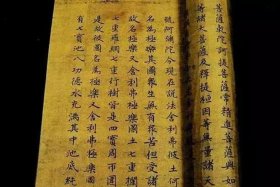 菩薩乾陀訶提菩薩常精進菩薩與如
等諸大菩薩及釋提桓因等無量諸天
號阿彌陀今現在說法舍利弗彼土何
名為極樂其國衆生無有衆苦但受諸
故名極樂又舍利弗極樂國土七重欄
七重羅網七重行樹皆是四寶周帀圍
是故彼國名為極樂又舍利弗極樂國
有七寶池八功德水充滿其中池底純